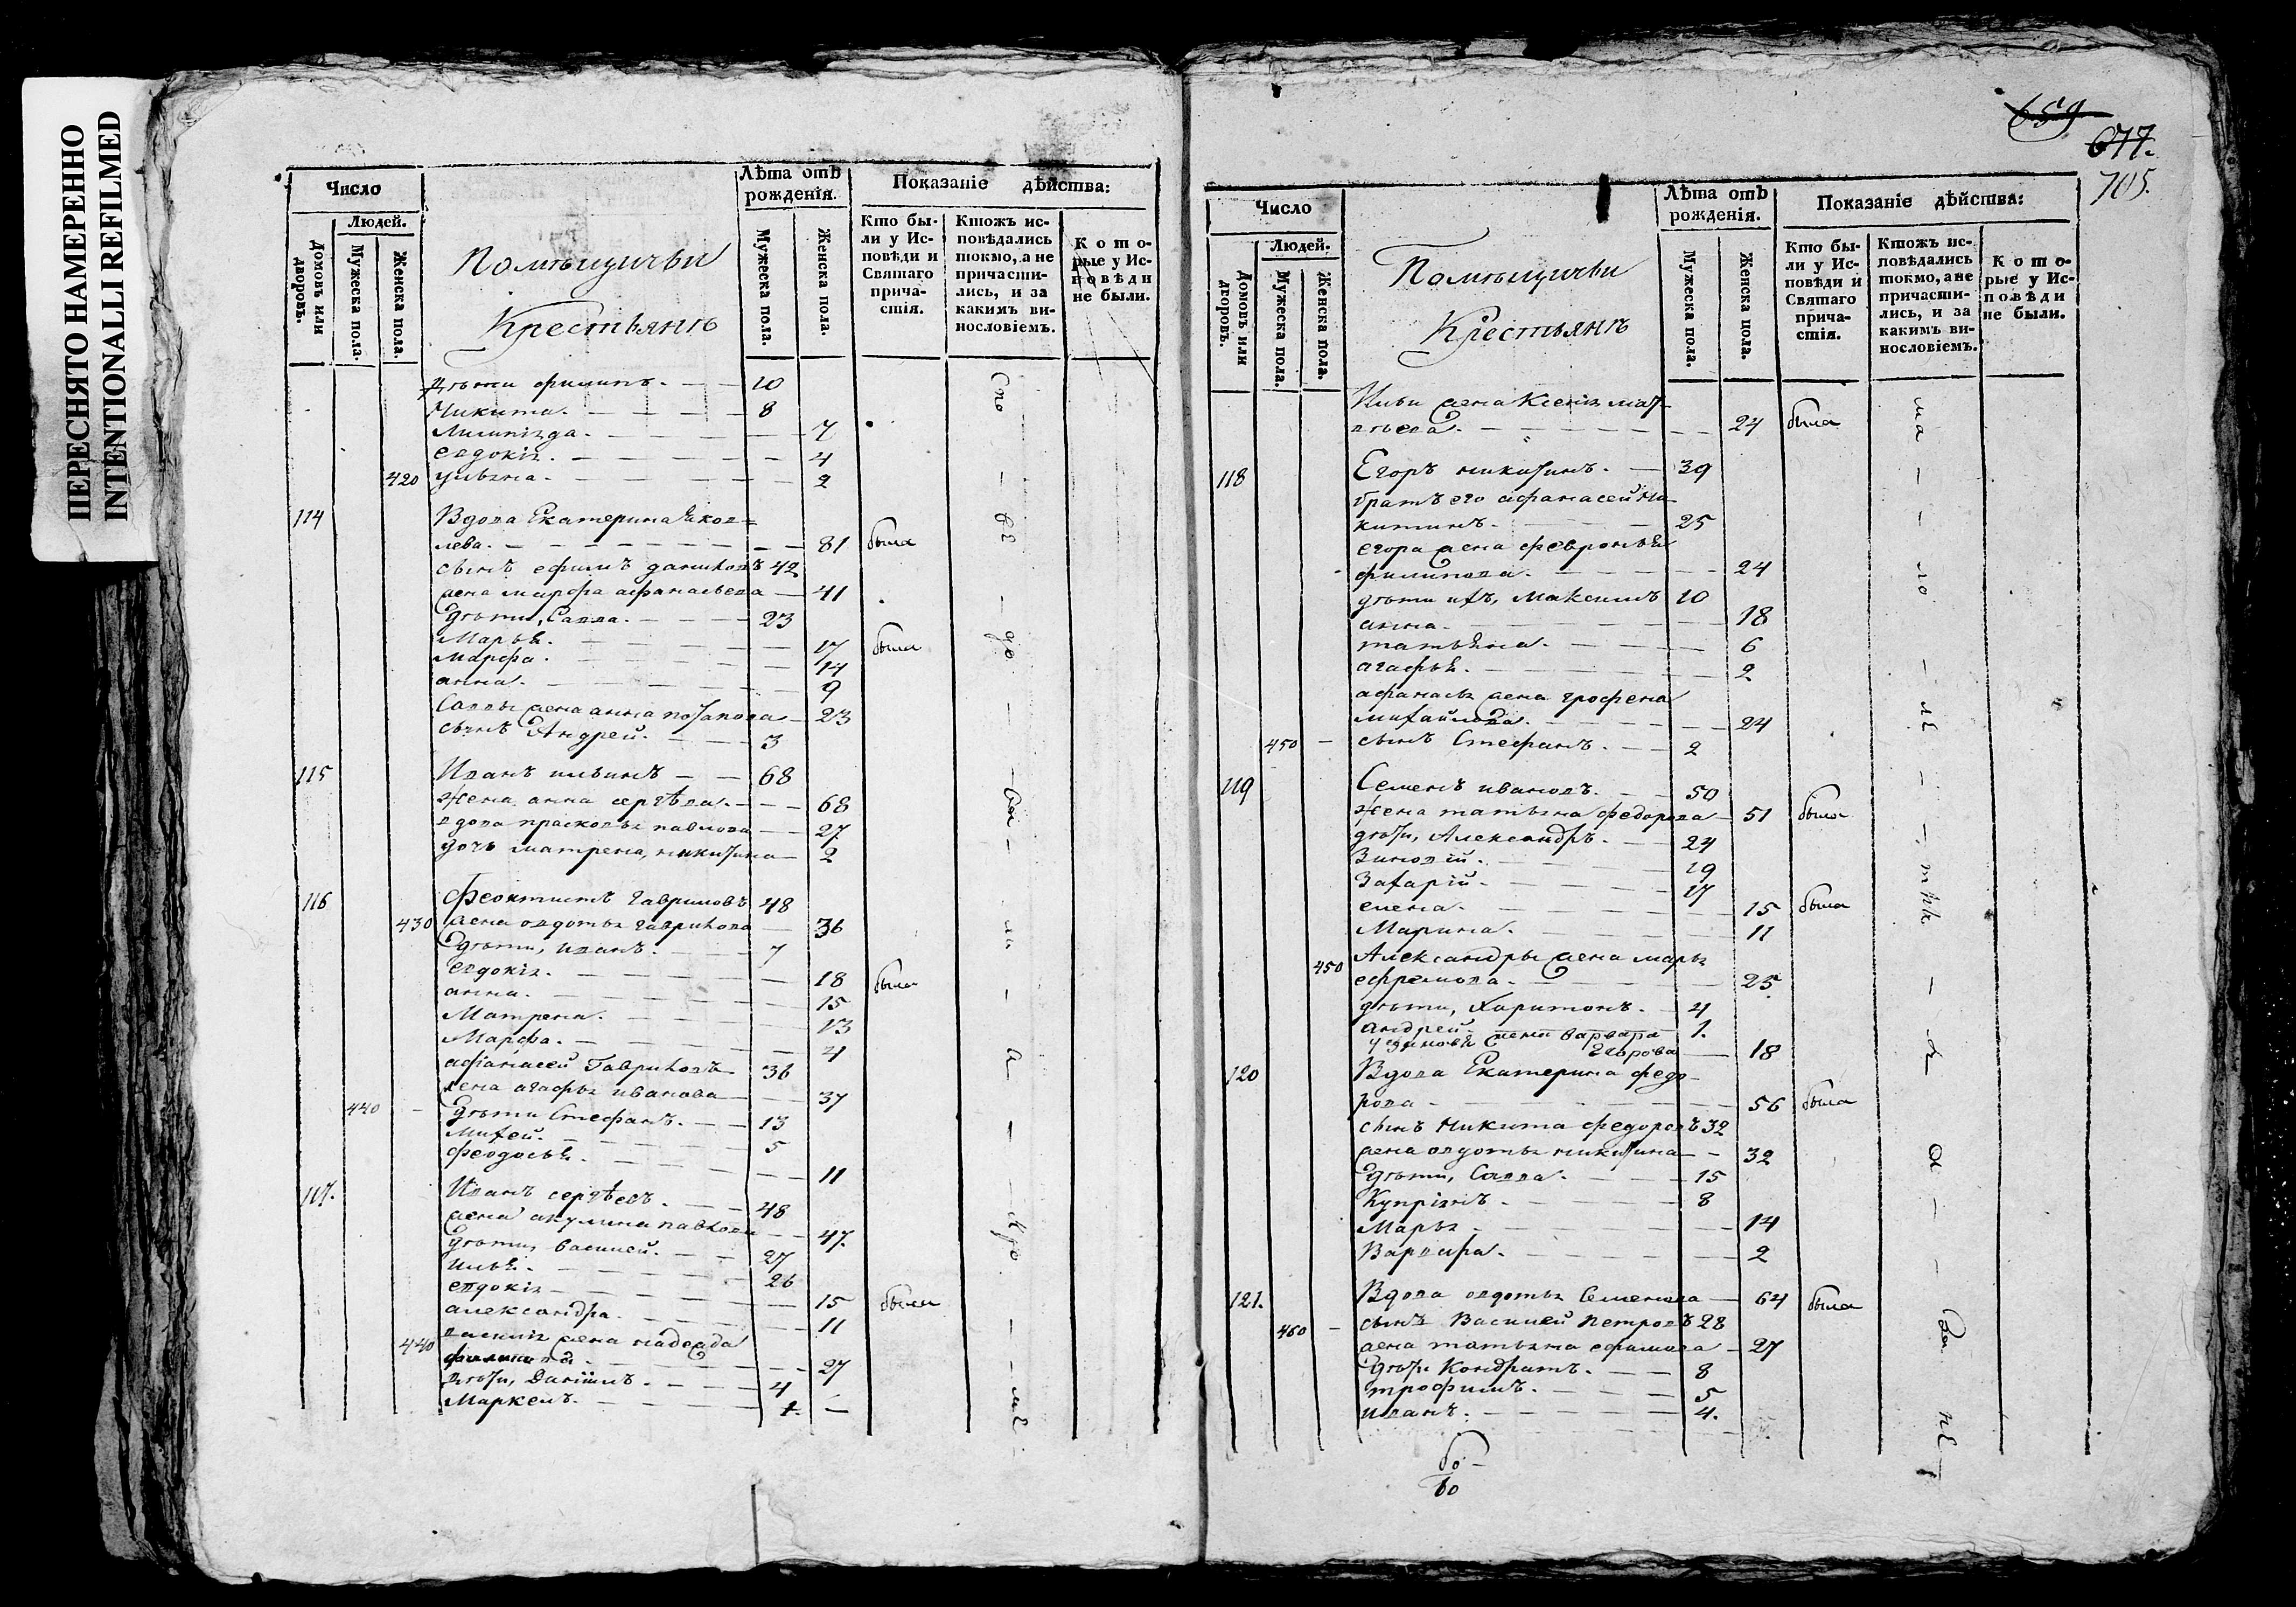 ПЕРЕСНЯТО НАМЕРЕННО
INTENTIONALLI REFILMED
Число
Людей.
Домовъ или дворовъ.
Мужеска пола.
Женска пола.
Помѣщичьи
Крестьянъ
Лѣта отъ рожденія.
Мужеска пола.
Женска пола.
Показаніе дѣйства:
Кто были у Исповѣди и Святаго причастія.
Ктожъ исповѣдались токмо, а не причастились, и за какимъ винословіемъ.
Которые у Исповѣди не были.
дѣти филипъ. 10
Никита. 8
7
евдокія. 4
420 ульяна. 2
114 Вдова Екатерина Яков=
лева. 81 была
сынъ ефимъ даниловъ 42
жена марфа афанасьева 41
дѣти, Савва. 23
Марья. 17 была
Марфа. 14
анна. 9
Саввы жена анна потапова 23
сынъ Андрей. 3
115 Иванъ ильинъ 68
Жена анна сергѣева. 68
вдова прасковья павлова 27
дочь матрена, никитина 2
116 Феоктистъ Гавриловъ 48
430 жена авдотья гаврилова 36
дѣти, иванъ. 7
евдокія. 18 была
анна. 15
Матрена. 13
Марфа. 4
афанасей Гавриловъ 36
жена агафья иванова 37
440 дѣти Стефанъ. 13
Михей. 5
феодосья. 11
117. Иванъ сергѣевъ. 48
жена акулина павлова 47.
дѣти, василей. 27
илья. 26
евдокія 15 были
александра. 11
440 василія жена надежда
филипова. 27
дѣти, Даніилъ. 4
Маркелъ. 1.
659
677.
705.
Число
Людей.
Домовъ или дворовъ.
Мужеска пола.
Женска пола.
Помѣщичьи
Крестьянъ
Лѣта отъ рожденія.
Мужеска пола.
Женска пола.
Показаніе дѣйства:
Кто были у Исповѣди и Святаго причастія.
Ктожъ исповѣдались токмо, а не причастились, и за какимъ винословіемъ.
Которые у Исповѣди не были.
Ильи жена Ксенія мат-
вѣева. 24 была
118 Егоръ никитинъ. 39
братъ его афанасей ни-
китинъ. 25
егора жена февронья
филипова. 24
дѣти ихъ, Максимъ 10
анна. 18
татьяна. 6
агафья. 2
афанасья жена грофена
михайлова. 24
450 сынъ Стефанъ. 2
119 Семенъ ивановъ. 50
Жена татьяна федорова 51 была
дѣти, Александръ. 24
Зиновій. 19
Захарій. 17
елена. 15 была
Марина. 11
450 Александры жена марья
ефремова. 25
дѣти, Харитонъ. 4
андрей. 1.
жена варвара
Егорова 18
120 Вдова Екатерина федо-
рова 56 была
сынъ никита федоровъ 32
жена авдотья никитина 32
дѣти, Савва. 15
Купріянъ 8
Марья 14
Варвара. 2
121. Вдова авдотья Семенова 64 была
460 сынъ Василей петровъ 28
жена татьяна ефимова 27
дѣти Кондратъ. 8
трофимъ. 5
иванъ. 4.